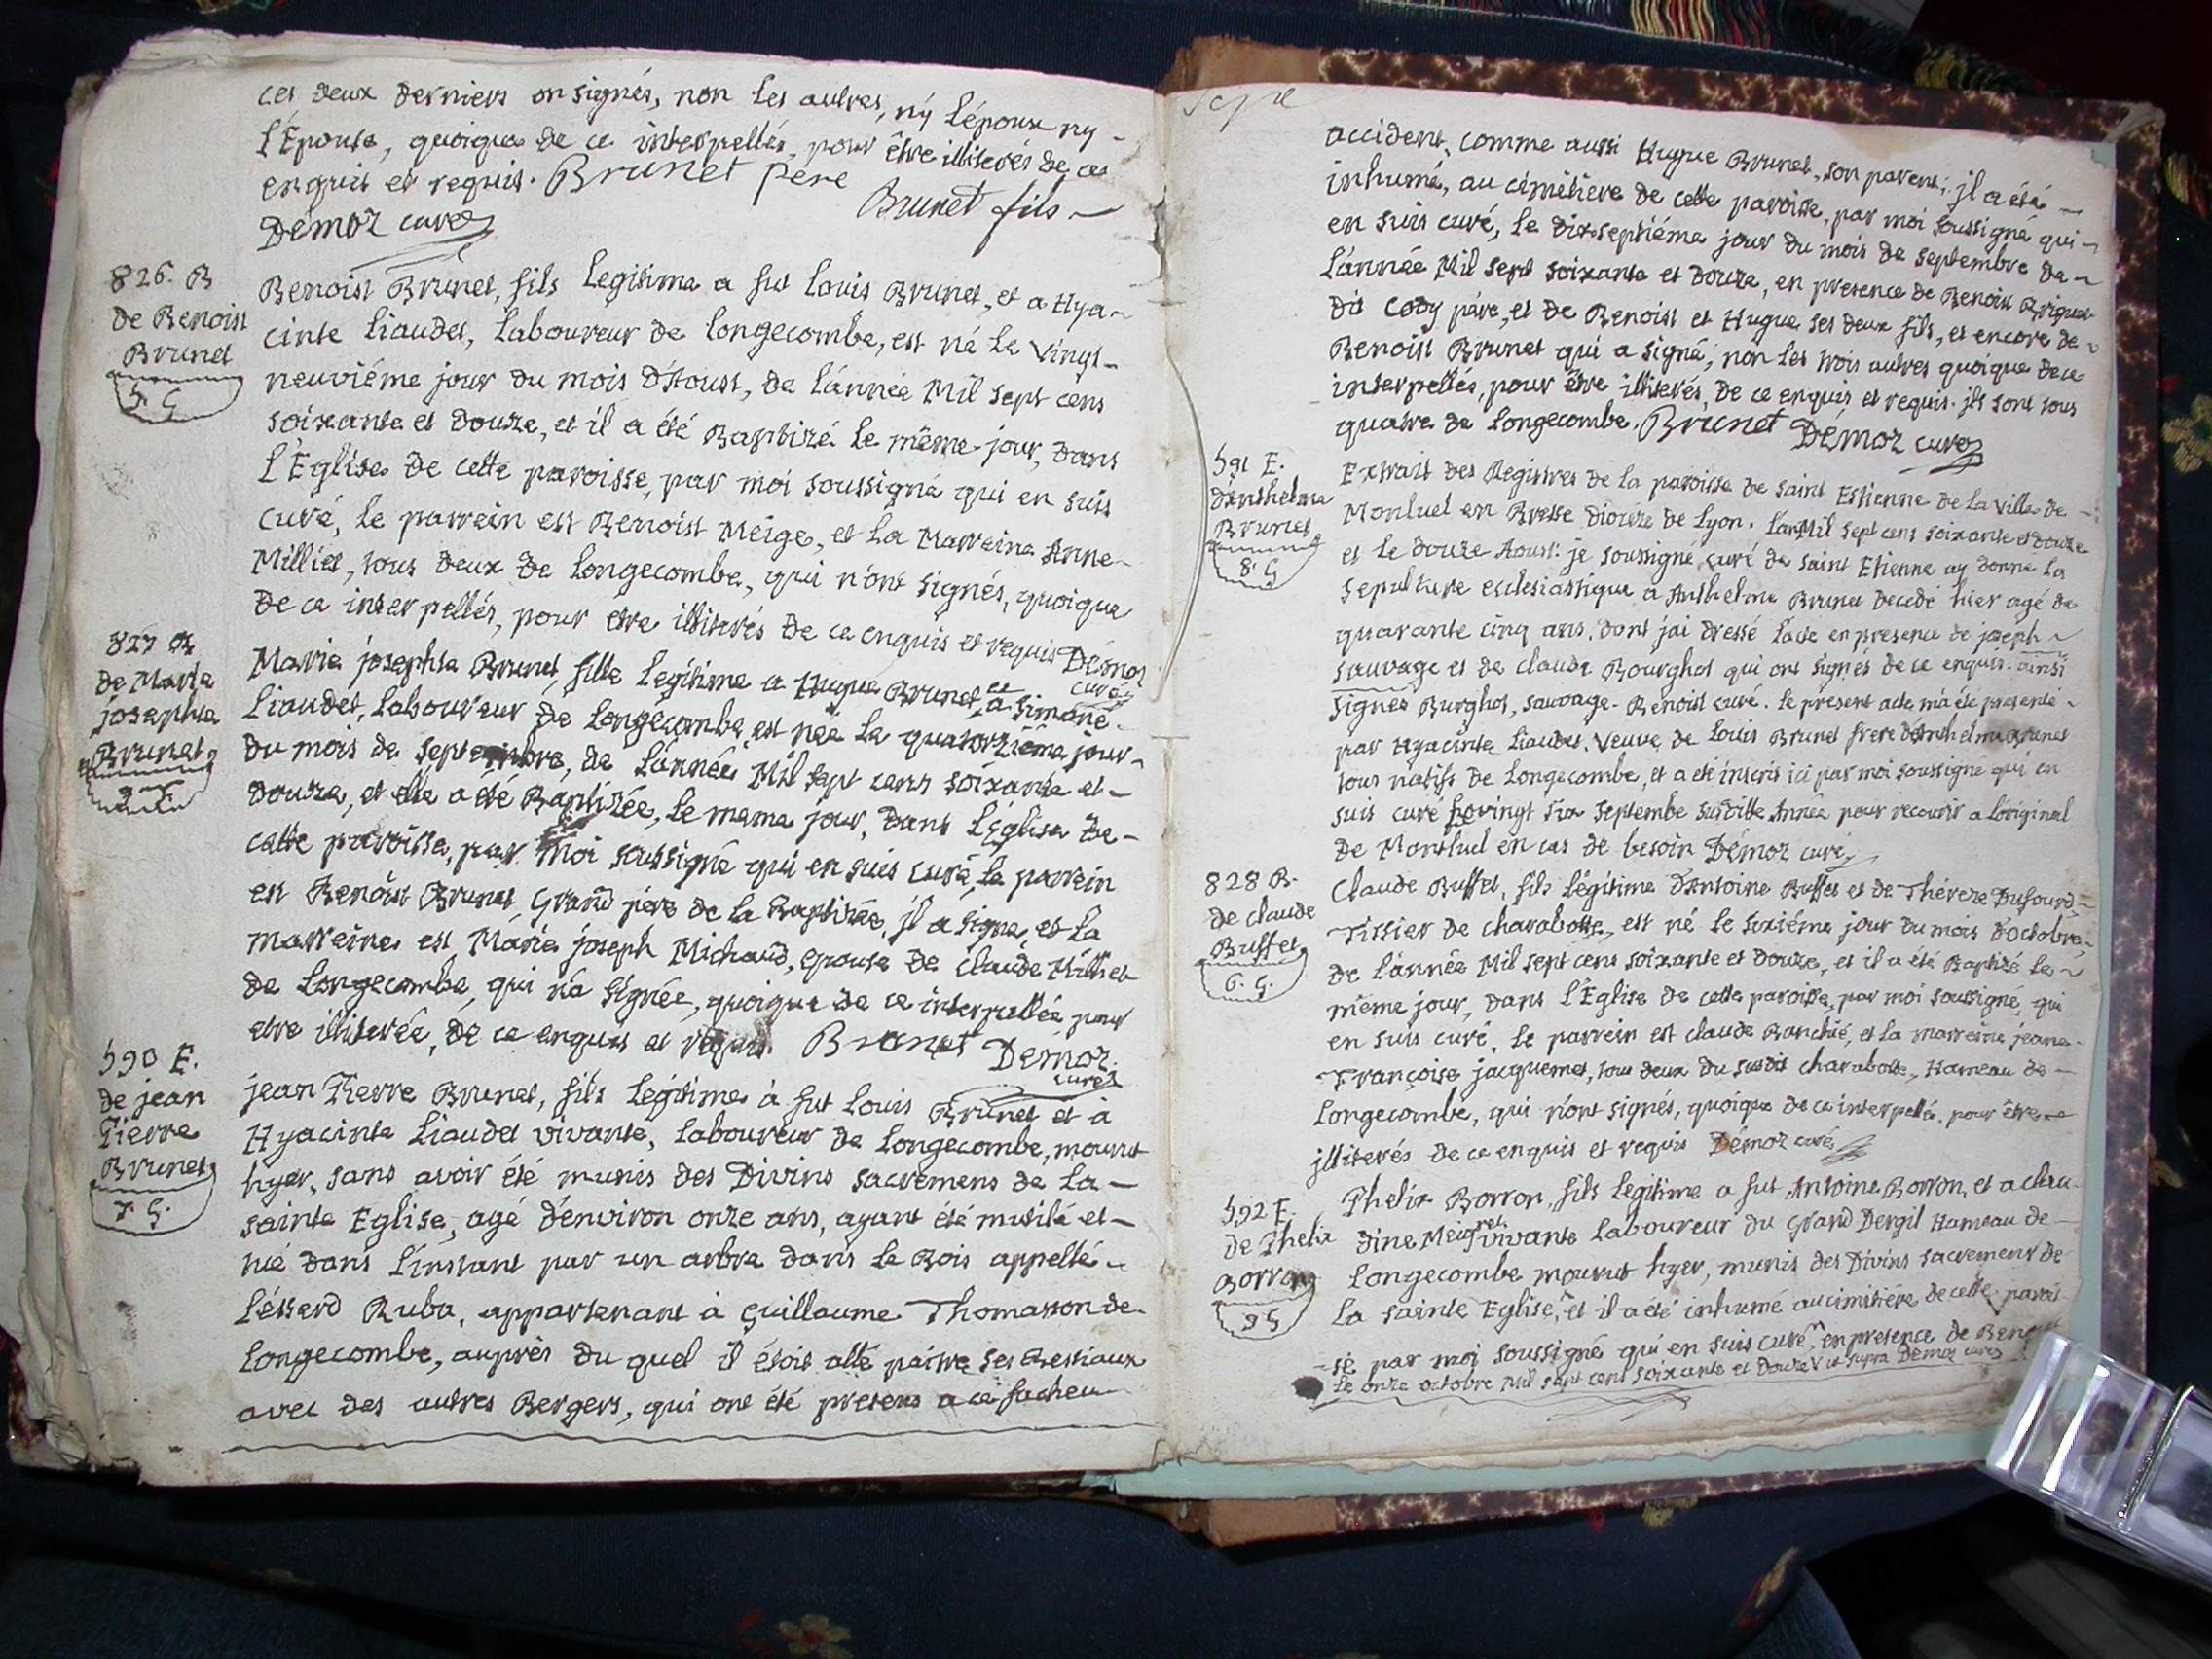 ces deux derniers on signés, non les autres, ny l'époux ny
l'Epouse, quoique de ce interpellés, pour être illiterés de ce
enquis et requis. Brunet père
Brunet fils
Démoz curé
826. B
de Benoist
Brunet
5. G
Benoist Brunet, fils legitime a fut louis Brunet, et a Hya-
cinte liaudet, laboureur de longecombe, est né le vingt-
neuviéme jour du mois d'Aoust, de l'année Mil sept cens
soixante et douze, et il a été Baptizé le même jour, dans
l'Eglise de cette paroisse, par moi soussigné qui en suis
curé, le parrein est Benoist Meige, et la Marreine Anne
Milliet, tous deux de longecombe, qui n'ont signés, quoique
de ce interpellés, pour etre illiterés de ce enquis et requis Démoz
curé
827 B
de Marie
josephte
Brunet
Marie josephte Brunet, fille legitime a Hugue Brunet, et a simone
liaudet, laboureur de longecombe, est née le quatorziéme jour
du mois de septembre, de l'année Mil sept cens soixante et
douze, et elle a été Baptizée, le meme jour, dans l'Eglise de
cette paroisse, par moi soussigné qui en suis curé, le parrein
en Benoist Brunet, Grand père de la Baptizée, jl a signé, et la
marreine est Marie joseph Michaud, epouse de claude Milliet
de longecombe, qui n'a signée, quoique de ce interpellée pour
etre illiterée, de ce enquis et requis. Brunet Démoz
curé
590 E.
de jean
Pierre
Brunet
7. G.
jean Pierre Brunet, fils legitime à fut louis Brunet et à
Hyacinte liaudet vivante, laboureur de longecombe, mourut
hyer, sans avoir été munis des Divins sacremens de la
sainte Eglise, agé d'environ onze ans, ayant été mutilé et
tué dans l'instant par un arbre dans le Bois appellé
l'éssard Ruba, appartenant à guillaume Thomasson de
longecombe, auprès du quel il étoit allé paitre ses Bestiaux
avec des autres Bergers, qui ont été presens a ce facheu
accident, comme aussi Hugue Brunet, son parent; jl a été
inhumé, au cémétiere de cette paroisse, par moi soussigné qui
en suis curé, le dix septiéme jour du mois de septembre de
l'année Mil sept soixante et douze, en presence de Benoist Brigue
dit Cody père, et de Benoist et Hugue ses deux fils, et encore de
Benoist Brunet qui a signé; non les trois autres quoique de ce
interpellés, pour être illiterés, de ce enquis et requis. jls sont tous
quatre de longecombe. Brunet Démoz curé
591 E.
d'anthelme
Brunet
8. G
Extrait des Registres de la paroisse de saint Estienne de la ville de
Monluel en Bresse diocéze de Lyon. l'an Mil sept cens soixante et douze
et le douze Aoust. je soussigné, curé de saint Etienne ay donné la
sepulture ecclesiastique a Anthelme Brunet decedé hier agé de
quarante cinq ans, dont jai dressé l'acte en presence de joseph
sauvage et de claude Bourghot qui ont signés de ce enquis. ainsi
signés Burghot, sauvage. Benoist curé. le présent acte m'a été presenté
par Hyacinte liaudet. Veuve de louis Brunet frere d'Anthelme Brunet
tous natifs de longecombe, et a eté inscris ici par moi soussigné qui en
suis curé le vingt six septembe susditte Année pour recourir a l'original
de Montluel en cas de besoin Démoz curé
828 B.
de claude
Buffet
6. G.
Claude Buffet, fils légitime d'Antoine Buffet et de Thérèze Dufourd,
Tissier de charabotte, est né le sixiéme jour du mois d'octobre,
de l'année Mil sept cens soixante et douze, et il a été Baptizé le
même jour, dans l'Eglise de cette paroisse, par moi soussigné, qui
en suis curé, le parrein est claude Banchié, et la marreine jeane
Françoise jacquemet, tous deux du susdit charabotte, Hameau de
longecombe, qui n'ont signés, quoique de ce interpellés, pour être
jlliterés de ce enquis et requis Démoz curé
592 E.
de Phelix
Borron
9 G
Phelix Borron, fils legitime a fut Antoine Borron, et a clau
dine Meigret vivante laboureur du Grand Dergil Hameau de
longecombe mourut hyer, munis des Divins sacremens de
la sainte Eglise, et il a été inhumé au cimitière de cette parois
sé par moi soussigné qui en suis curé, en presence de Benoist
le onze octobre mil sept cent soixante et douze ut supra Démoz curé